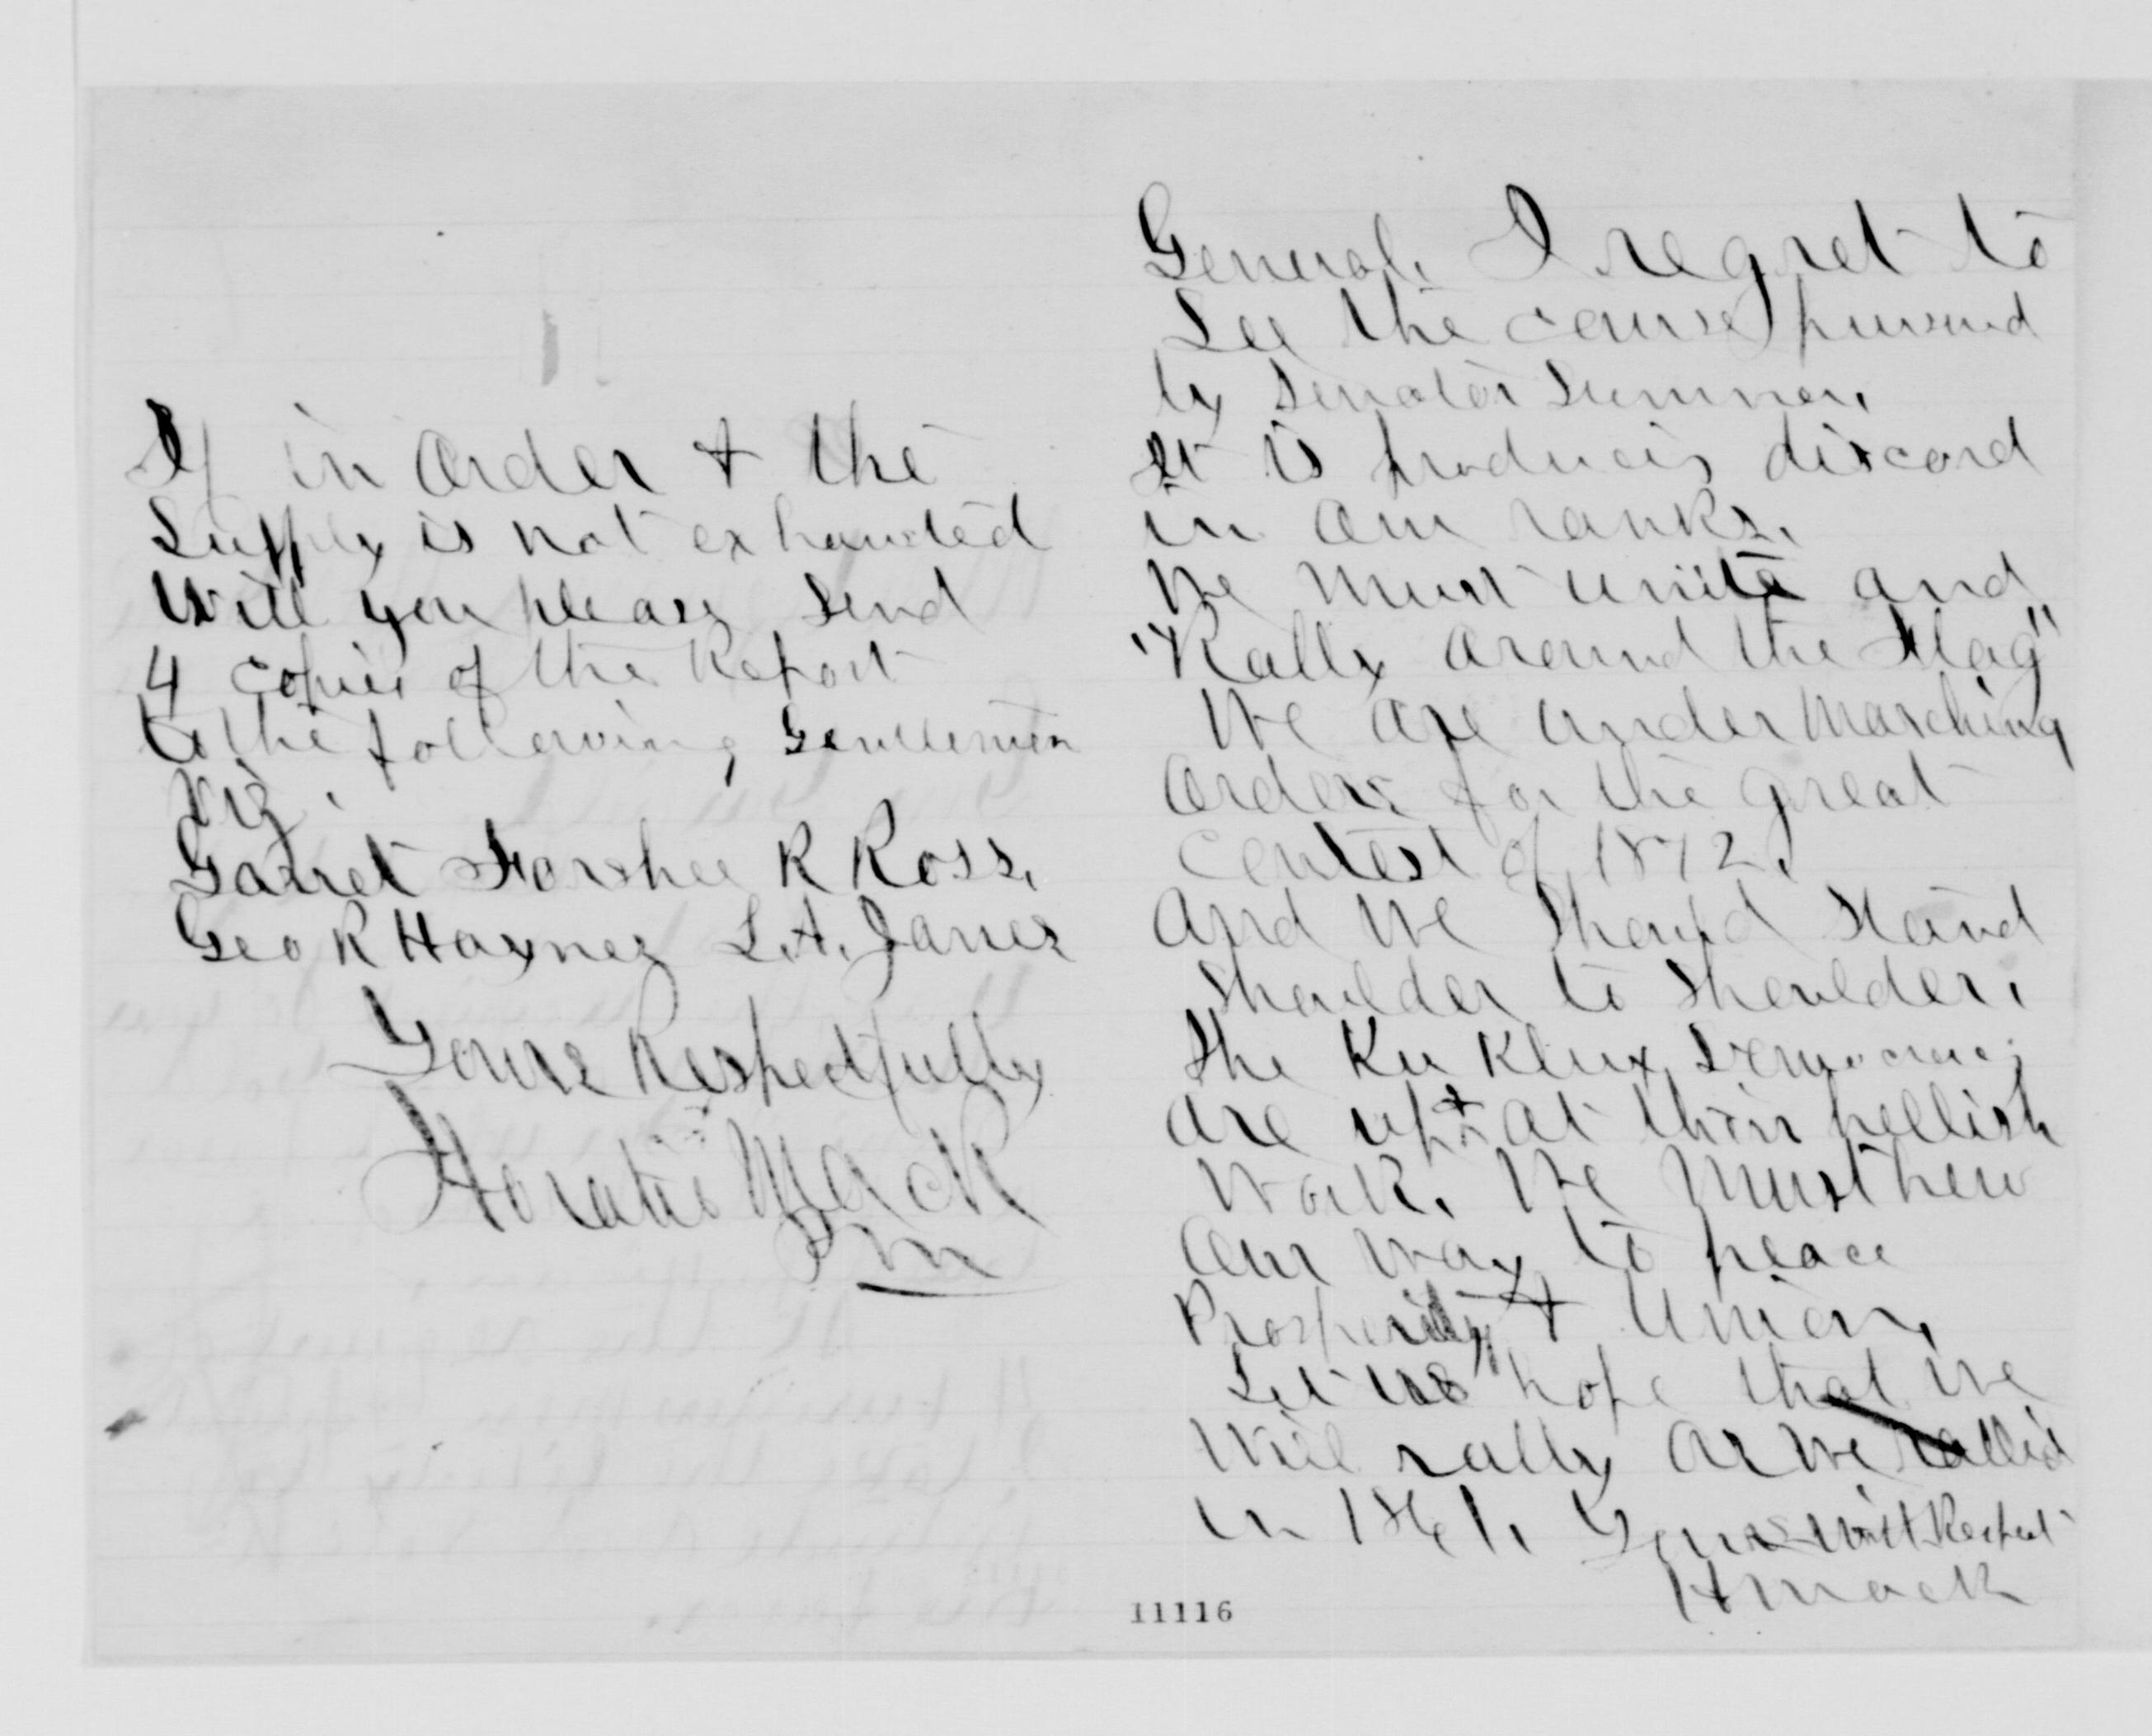 If in order & the
Supply is not exhausted
Will you please Send
4 copies of the Report
to the following Gentlemen
Viz.
Garret Forshee R Ross.
Geo R Haynes L. A. Janes
Yours Respectfully
Horatio Mack
P m
General. I regret to
See the course pursued
by Senator Sumner.
It is producing discord
in our ranks.
We must unite and
"Rally around the Flag"
We are under marching
orders for the great
contest of 1872.
And we should stand
Shoulder to Shoulder.
The Ku Klux Democracy
are up & at their hellish
work. We must hew
our way to peace
Prosperity & Union.
Let us hope that we
will rally as we rallied
in 1861. Yours with Respect
H Mack
11116